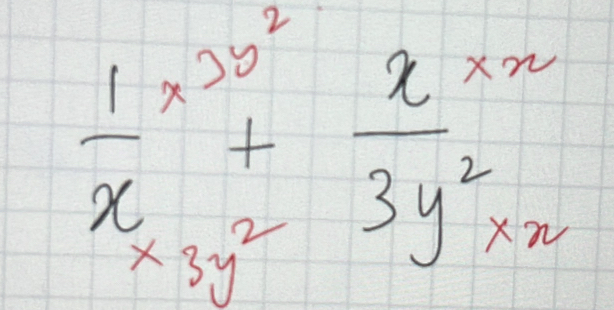 1/x ×3y²/×3y² + x/3y² ×x/×x